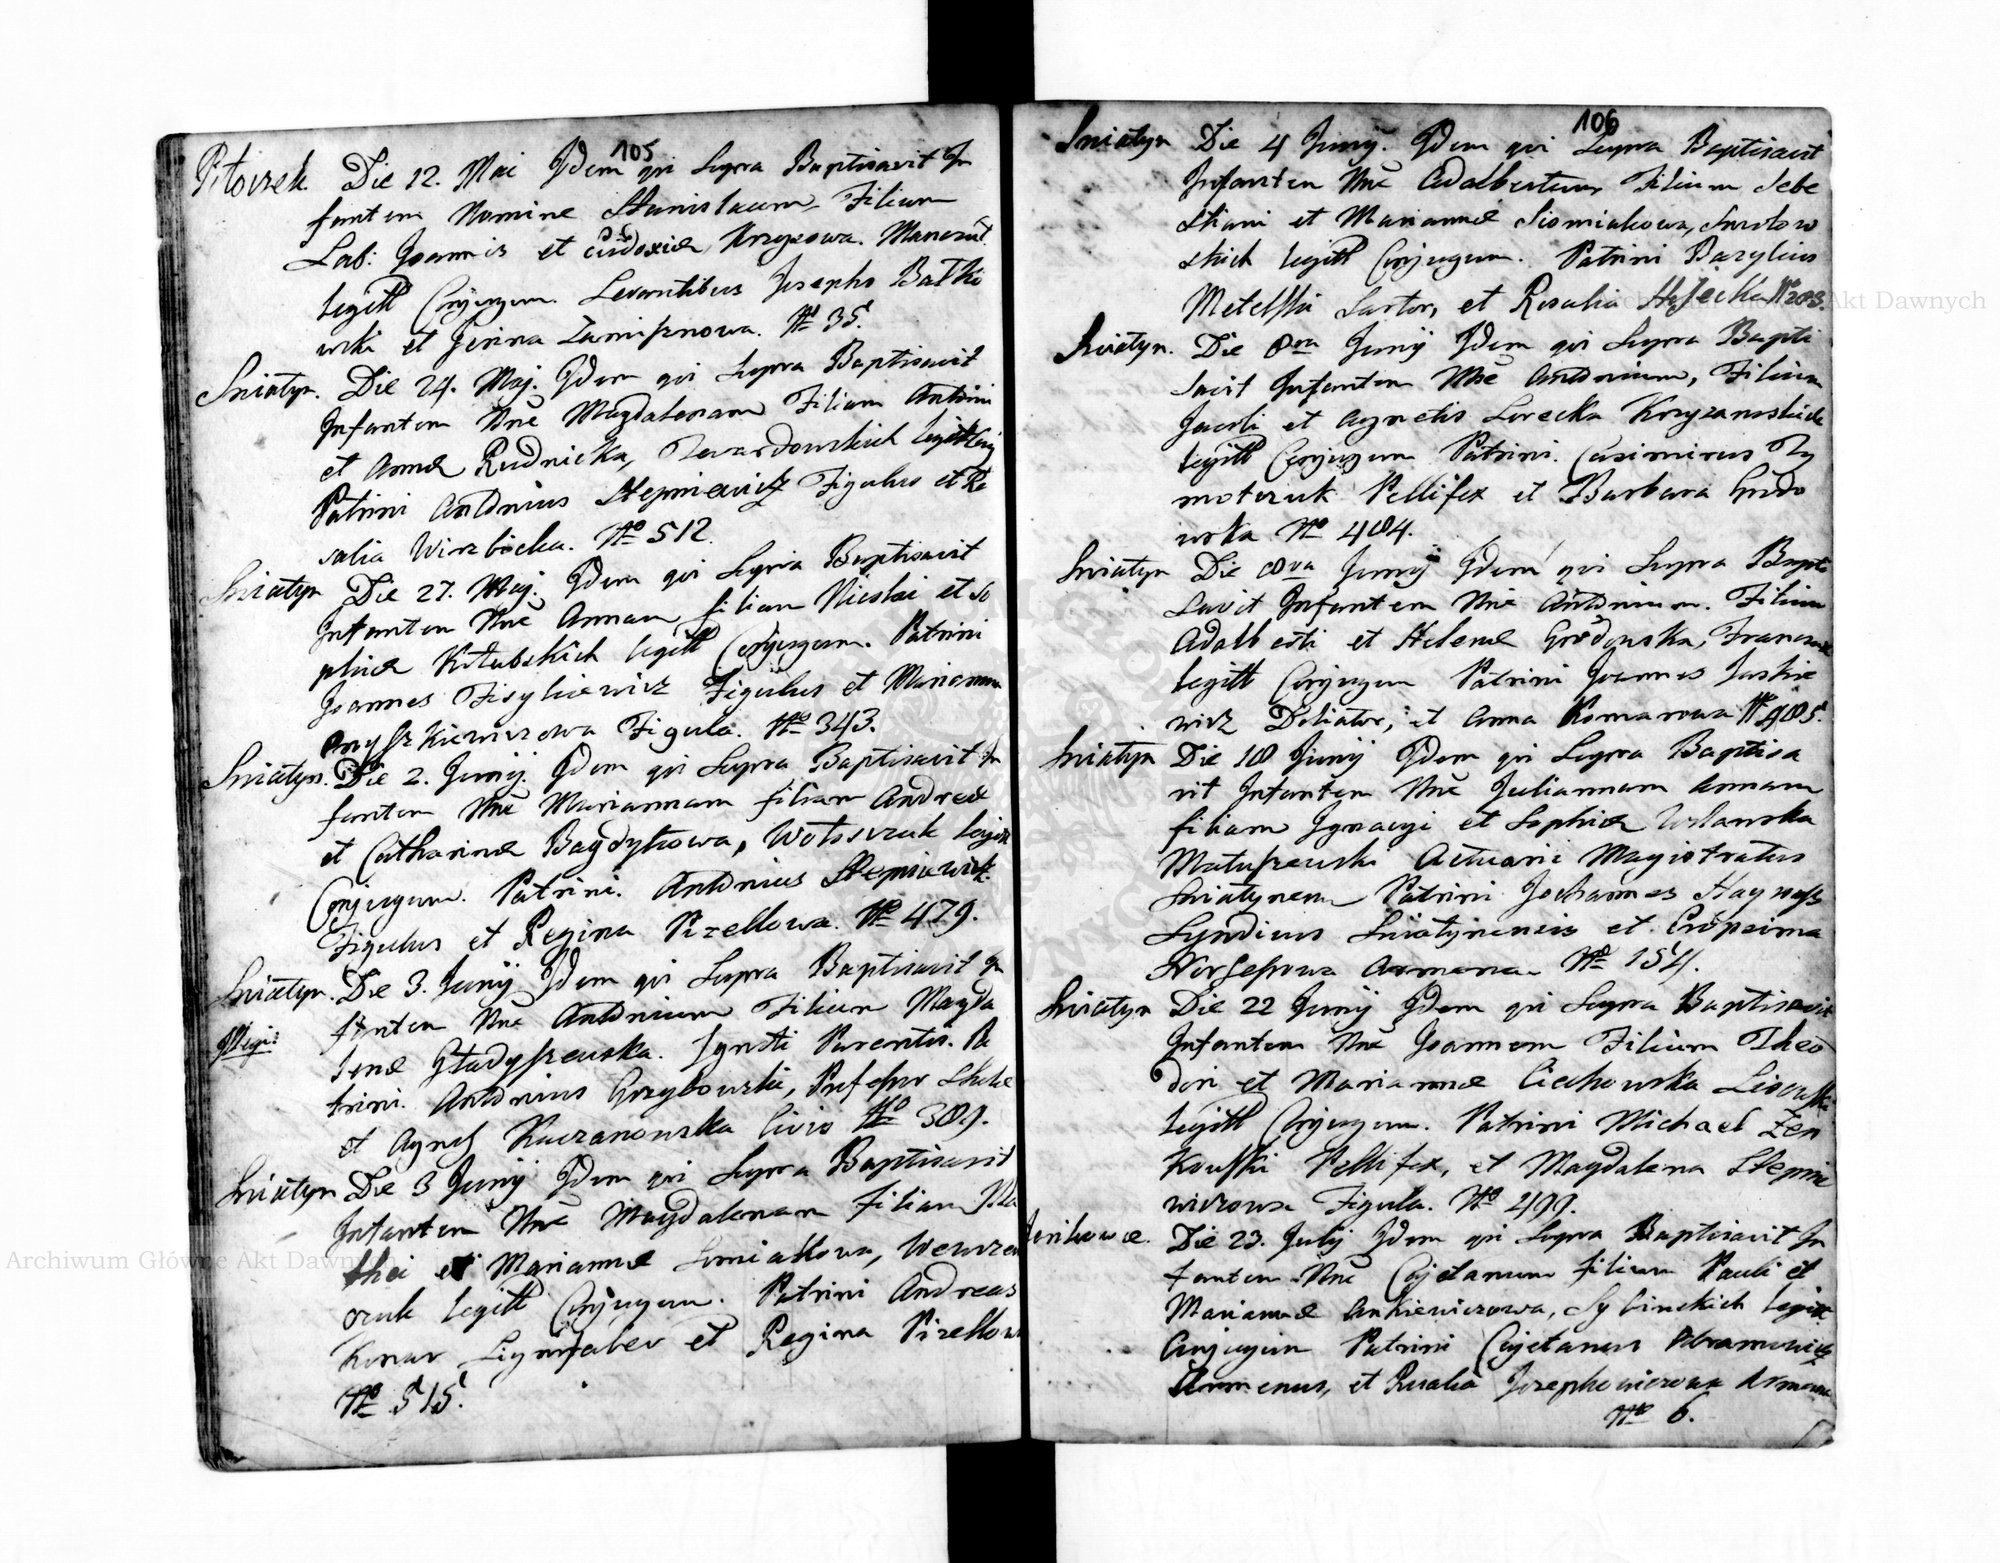 105
Die 12. Mai Idem qui Supra Baptisavit In
fantem Nomine Stanislaum, Filium
Lab: Joannis et Eudoxiæ Krzyzowa.
legitt Conjugum. Levantibus Josepho Batko
wski et Jrina N° 35.
Sniatyn. Die 24. Maj. Idem qui Supra Baptisavit
Infantem Nñe Magdalenam Filiam Antoni
et Annæ Rudnicka, Twardowskich legitt Conj
Patrini Antonius Stepniewicz Figulus et Ro
salia Wirzbicka. N° 512.
Sniatyn Die 27. Maj. Idem qui Supra Baptisavit
Infantem Nñe Annam, filiam Nicolai et So
phiæ Kołubskich legitt Conjugum. Patrini
Joannes Fisykiewicz Figulus et Marianna
Figula. N° 343.
Sniatyn. Die 2. Junij. Idem qui Supra Baptisavit In
fantem Nñe Mariannam filiam Andreæ
et Catharinæ Bagdykowa, Wołoszczuk legitt
Conjugum. Patrini. Antonius Stepniewicz
Figulus et Regina Pizellowa. N° 479.
Sniatyn. Die 3. Junij Idem qui Supra Baptisavit In
fantem Nñe Antonium Filium Magda
Illegi:
lenæ Gładyszewska. Ignoti Parentis. Pa
trini. Antonius Grzybowski, Professor Scholæ
et Agnes Kaczanowska Civis N° 389.
Sniatyn Die 3 Junij Idem qui Supra Baptisavit
Infantem Nñe Magdalenam filiam Ma
thei et Mariannæ
czuk legitt Conjugum. Patrini Andreas
Konar Lignifaber et Regina Pizellow
N° 515.
106
Sniatyn Die 4 Junij. Idem qui Supra Baptisavit
Infantem Nñe Adalbertum, Filium Seba
stiani et Mariannæ Siomiakowa, Smolow
skich legitt Conjugum. Patrini Bazylius
Metelski Sartor, et Rosalia N° 203.
Sniatyn. Die 8va Junij Idem qui Supra Bapti
savit Infantem Nñe Antonium, Filium
Jacobi et Agnetis Sorecka Krzyzanoskich
legitt Conjugum Patrini. Casimirus Ty
moteruk Pellifex et Barbara Grudo
wska N° 484.
Sniatyn Die 8va Junij Idem qui Supra Bapti
savit Infantem Nñe Antonium. Filium
Adalberti et Helenæ Grodonska,
legitt Conjugum Patrini Joannes Jaskie
wicz Doliator, et Anna Komarowa N° 485.
Sniatyn Die 18 Junij Idem qui Supra Baptisa
vit Infantem Nñe Juliannam Annam
filiam Ignacyi et Sophiæ Uslanska
Matuszewski Actuarii Magistratus
Sniatynens Patrini Johannes Haynoss
Syndicus Sniatynensis et Cropsima
Norsesowa Armena N° 154.
Sniatyn Die 22 Junij Idem qui Supra Baptisavit
Infantem Nñe Joannem Filium Theo
dori et Mariannæ Ciechowska Lisowski
legitt Conjugum. Patrini Michael Zen
kowski Pellifex, et Magdalena Stepnie
wiczowa Figula. N° 499.
Die 23. Julij Idem qui Supra Baptisavit In
fantem Nñe Cajetanum filium Pauli et
Mariannæ Ankiewiczowa, Sybinskich legitt
Conjugum Patrini Cajetanus Abramowicz
Armenus, et Rosalia Jozephowiczowa Armena
N° 6.
Archiwum Główne Akt Dawnych